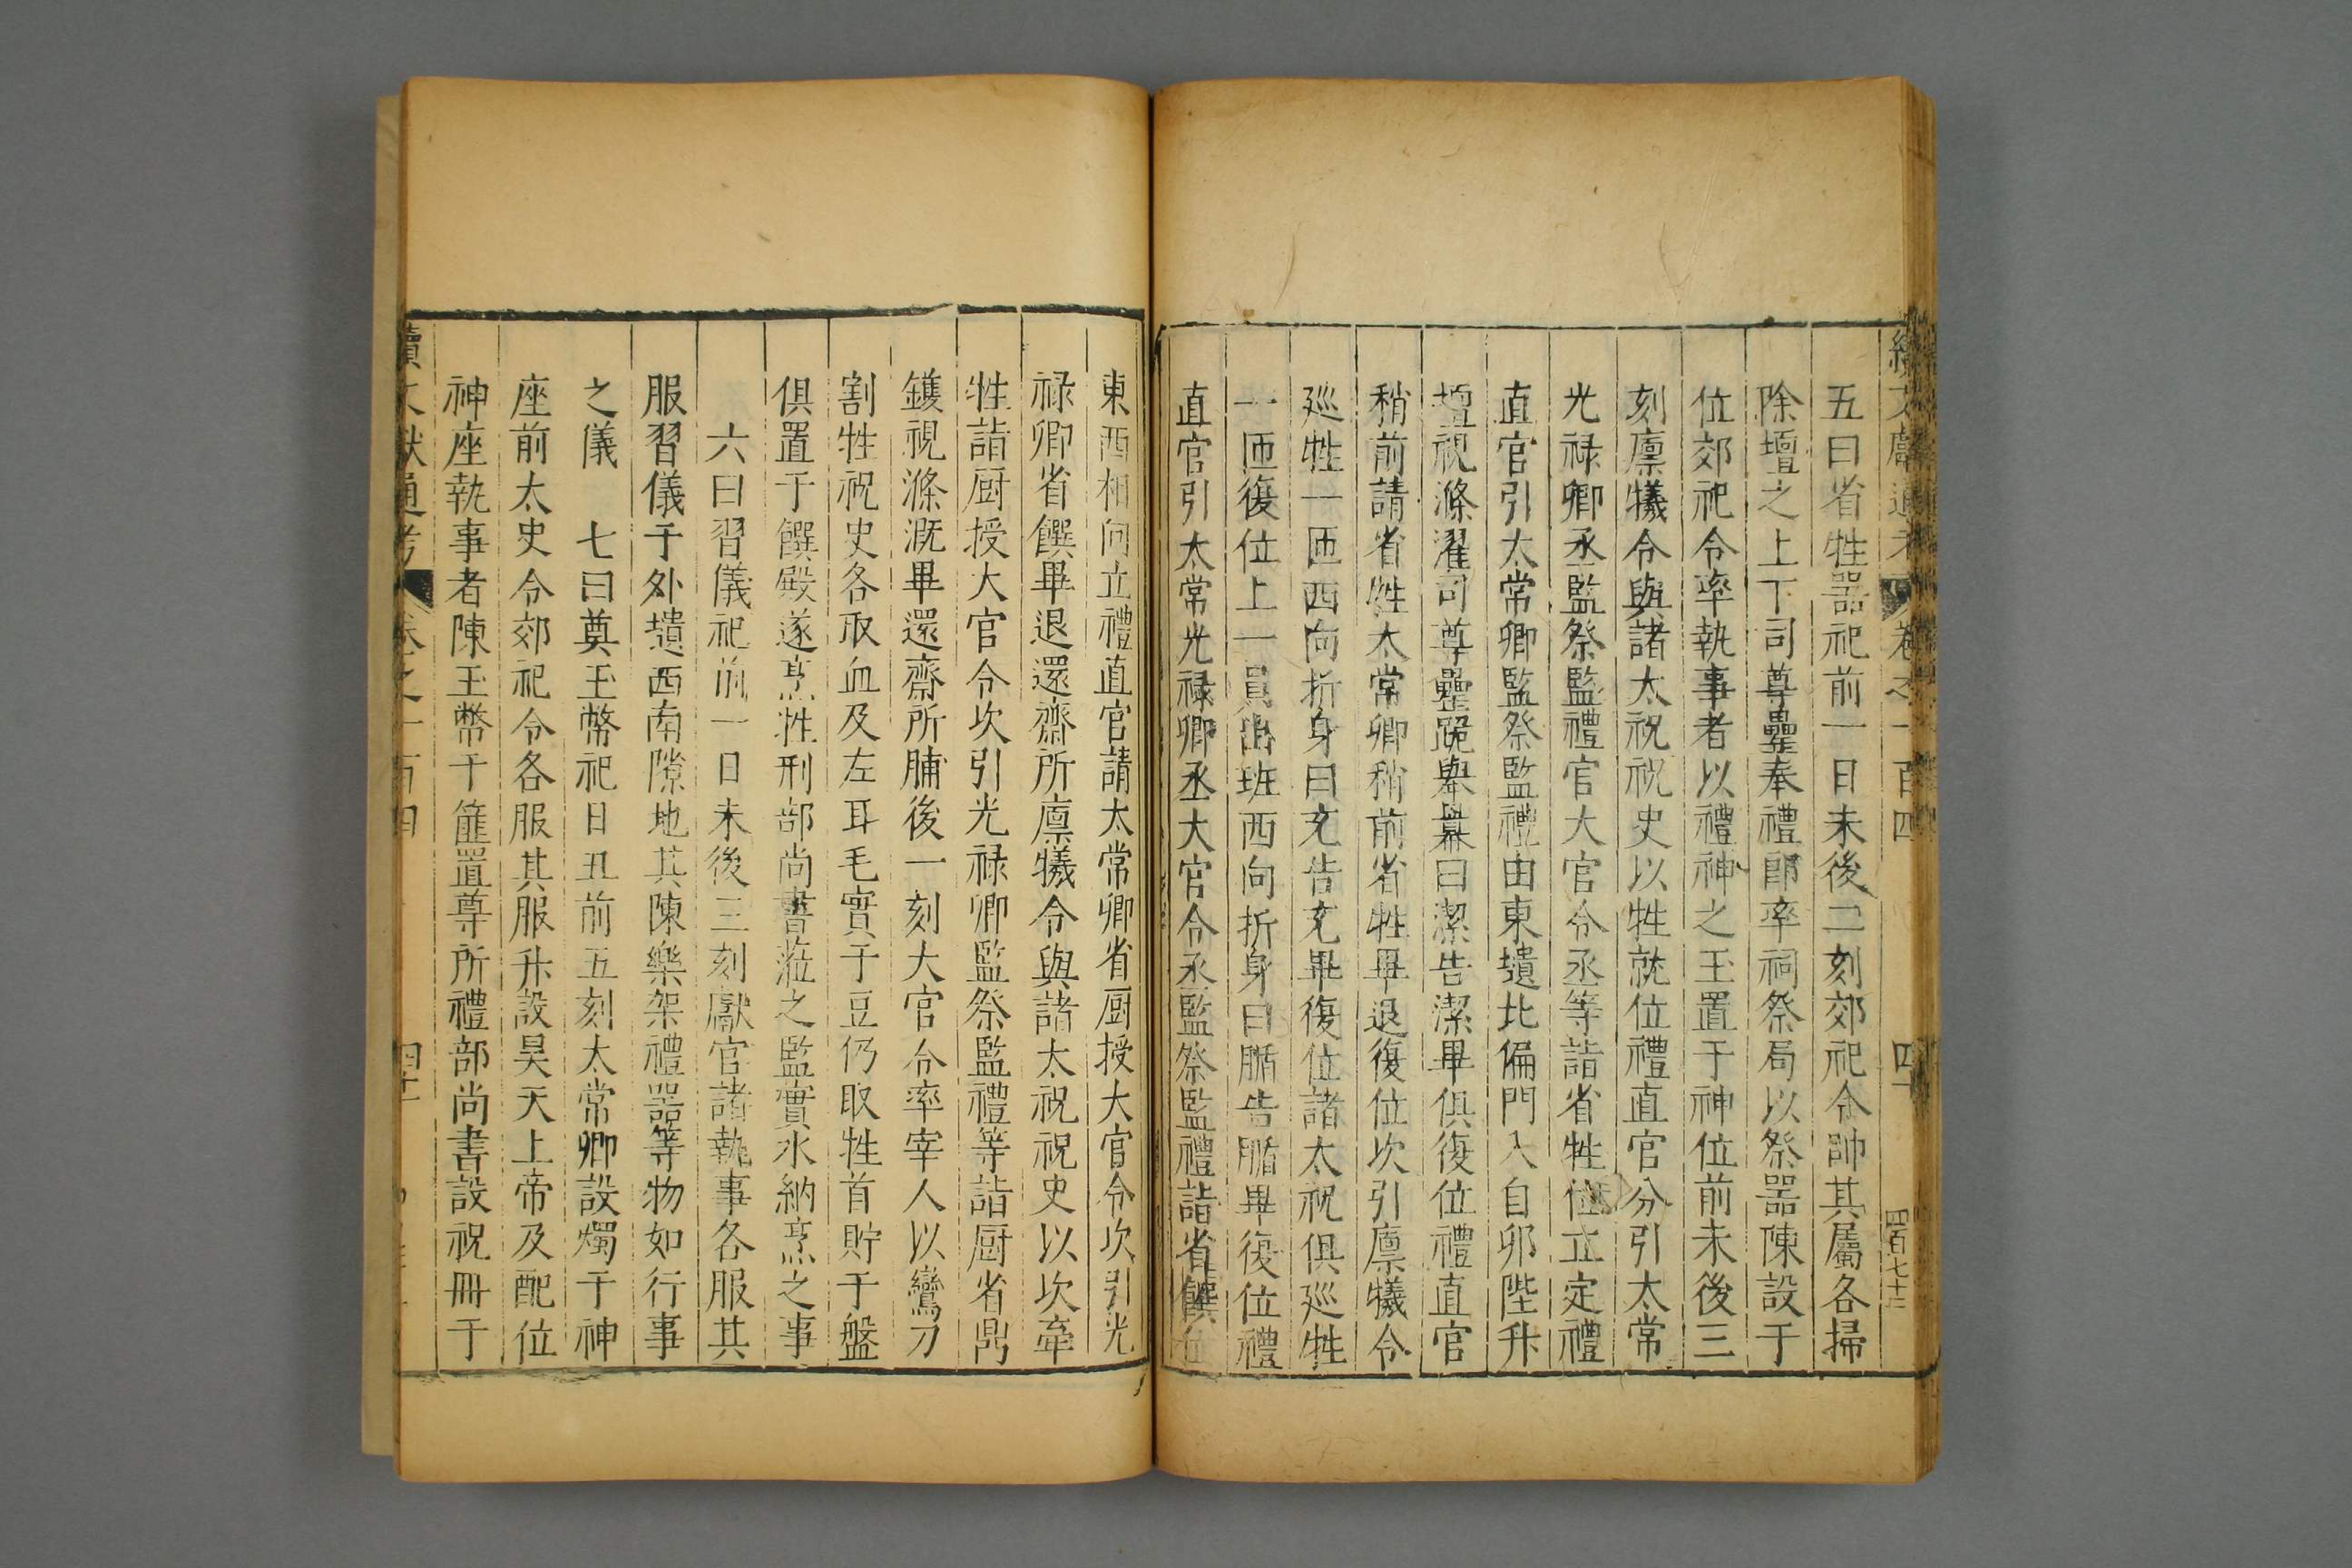 續文獻通考 卷之一百四 四十 四百七十二
五曰省牲器祀前一日未後二刻郊祀令帥其屬各掃
除壇之上下司尊罍奉禮郎率祠祭局以祭器陳設于
位郊祀令率執事者以禮神之玉置于神位前未後三
刻廪犧令與諸太祝祝史以牲就位禮直官分引太常
光禄卿丞監祭監禮官大官令丞等詣省牲位立定禮
直官引太常卿監祭監禮由東壝北偏門入自卯陛升
壇視滌濯司尊罍跪舉羃曰潔告潔畢俱復位禮直官
稍前請省牲太常卿稍前省牲畢退復位次引廪犧令
廵牲一匝西向折身曰充告充畢復位諸太祝俱廵牲
一匝復位上一員出班西向折身曰腯告腯畢復位禮
直官引太常光禄卿丞大官令丞監祭監禮詣省饌位
東西相向立禮直官請太常卿省厨授大官令次引光
禄卿省饌畢退還齋所廪犧令與諸太祝祝史以次牽
牲詣厨授大官令次引光禄卿監祭監禮等詣厨省鼎
鑊視滌溉畢還齋所脯後一刻大官令率宰人以鸞刀
割牲祝史各取血及左耳毛實于豆仍取牲首貯于盤
俱置于饌殿遂烹牲刑部尚書蒞之監實水納烹之事
六曰習儀祀前一日未後三刻獻官諸執事各服其
服習儀于外壝西南隙地其陳樂架禮器等物如行事
之儀 七曰奠玉幣祀日丑前五刻太常卿設燭于神
座前太史令郊祀令各服其服升設昊天上帝及配位
神座執事者陳玉幣于篚置尊所禮部尚書設祝冊于
續文獻通考 卷之一百四